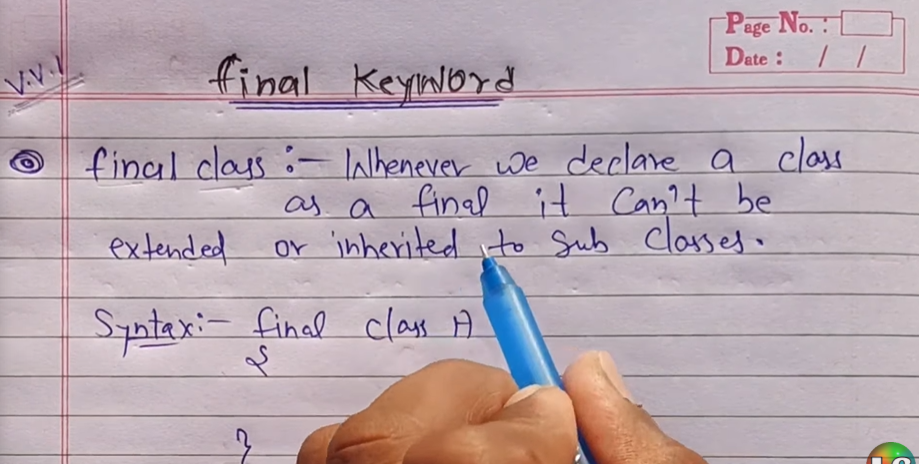 Page No. :
Date : / /
V.V.I
final Keyword
final class :- Whenever we declare a class
as a final it can't be
extended or inherited to Sub classes.
Syntax:- final class A
{
}